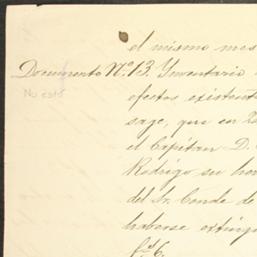 el mismo mes
Documento Nº 13. Ynventario
No está
efectos existent
sage, que en
el Capitan D.
Rodrigo su her
del Sr. Conde de
haberse extingu